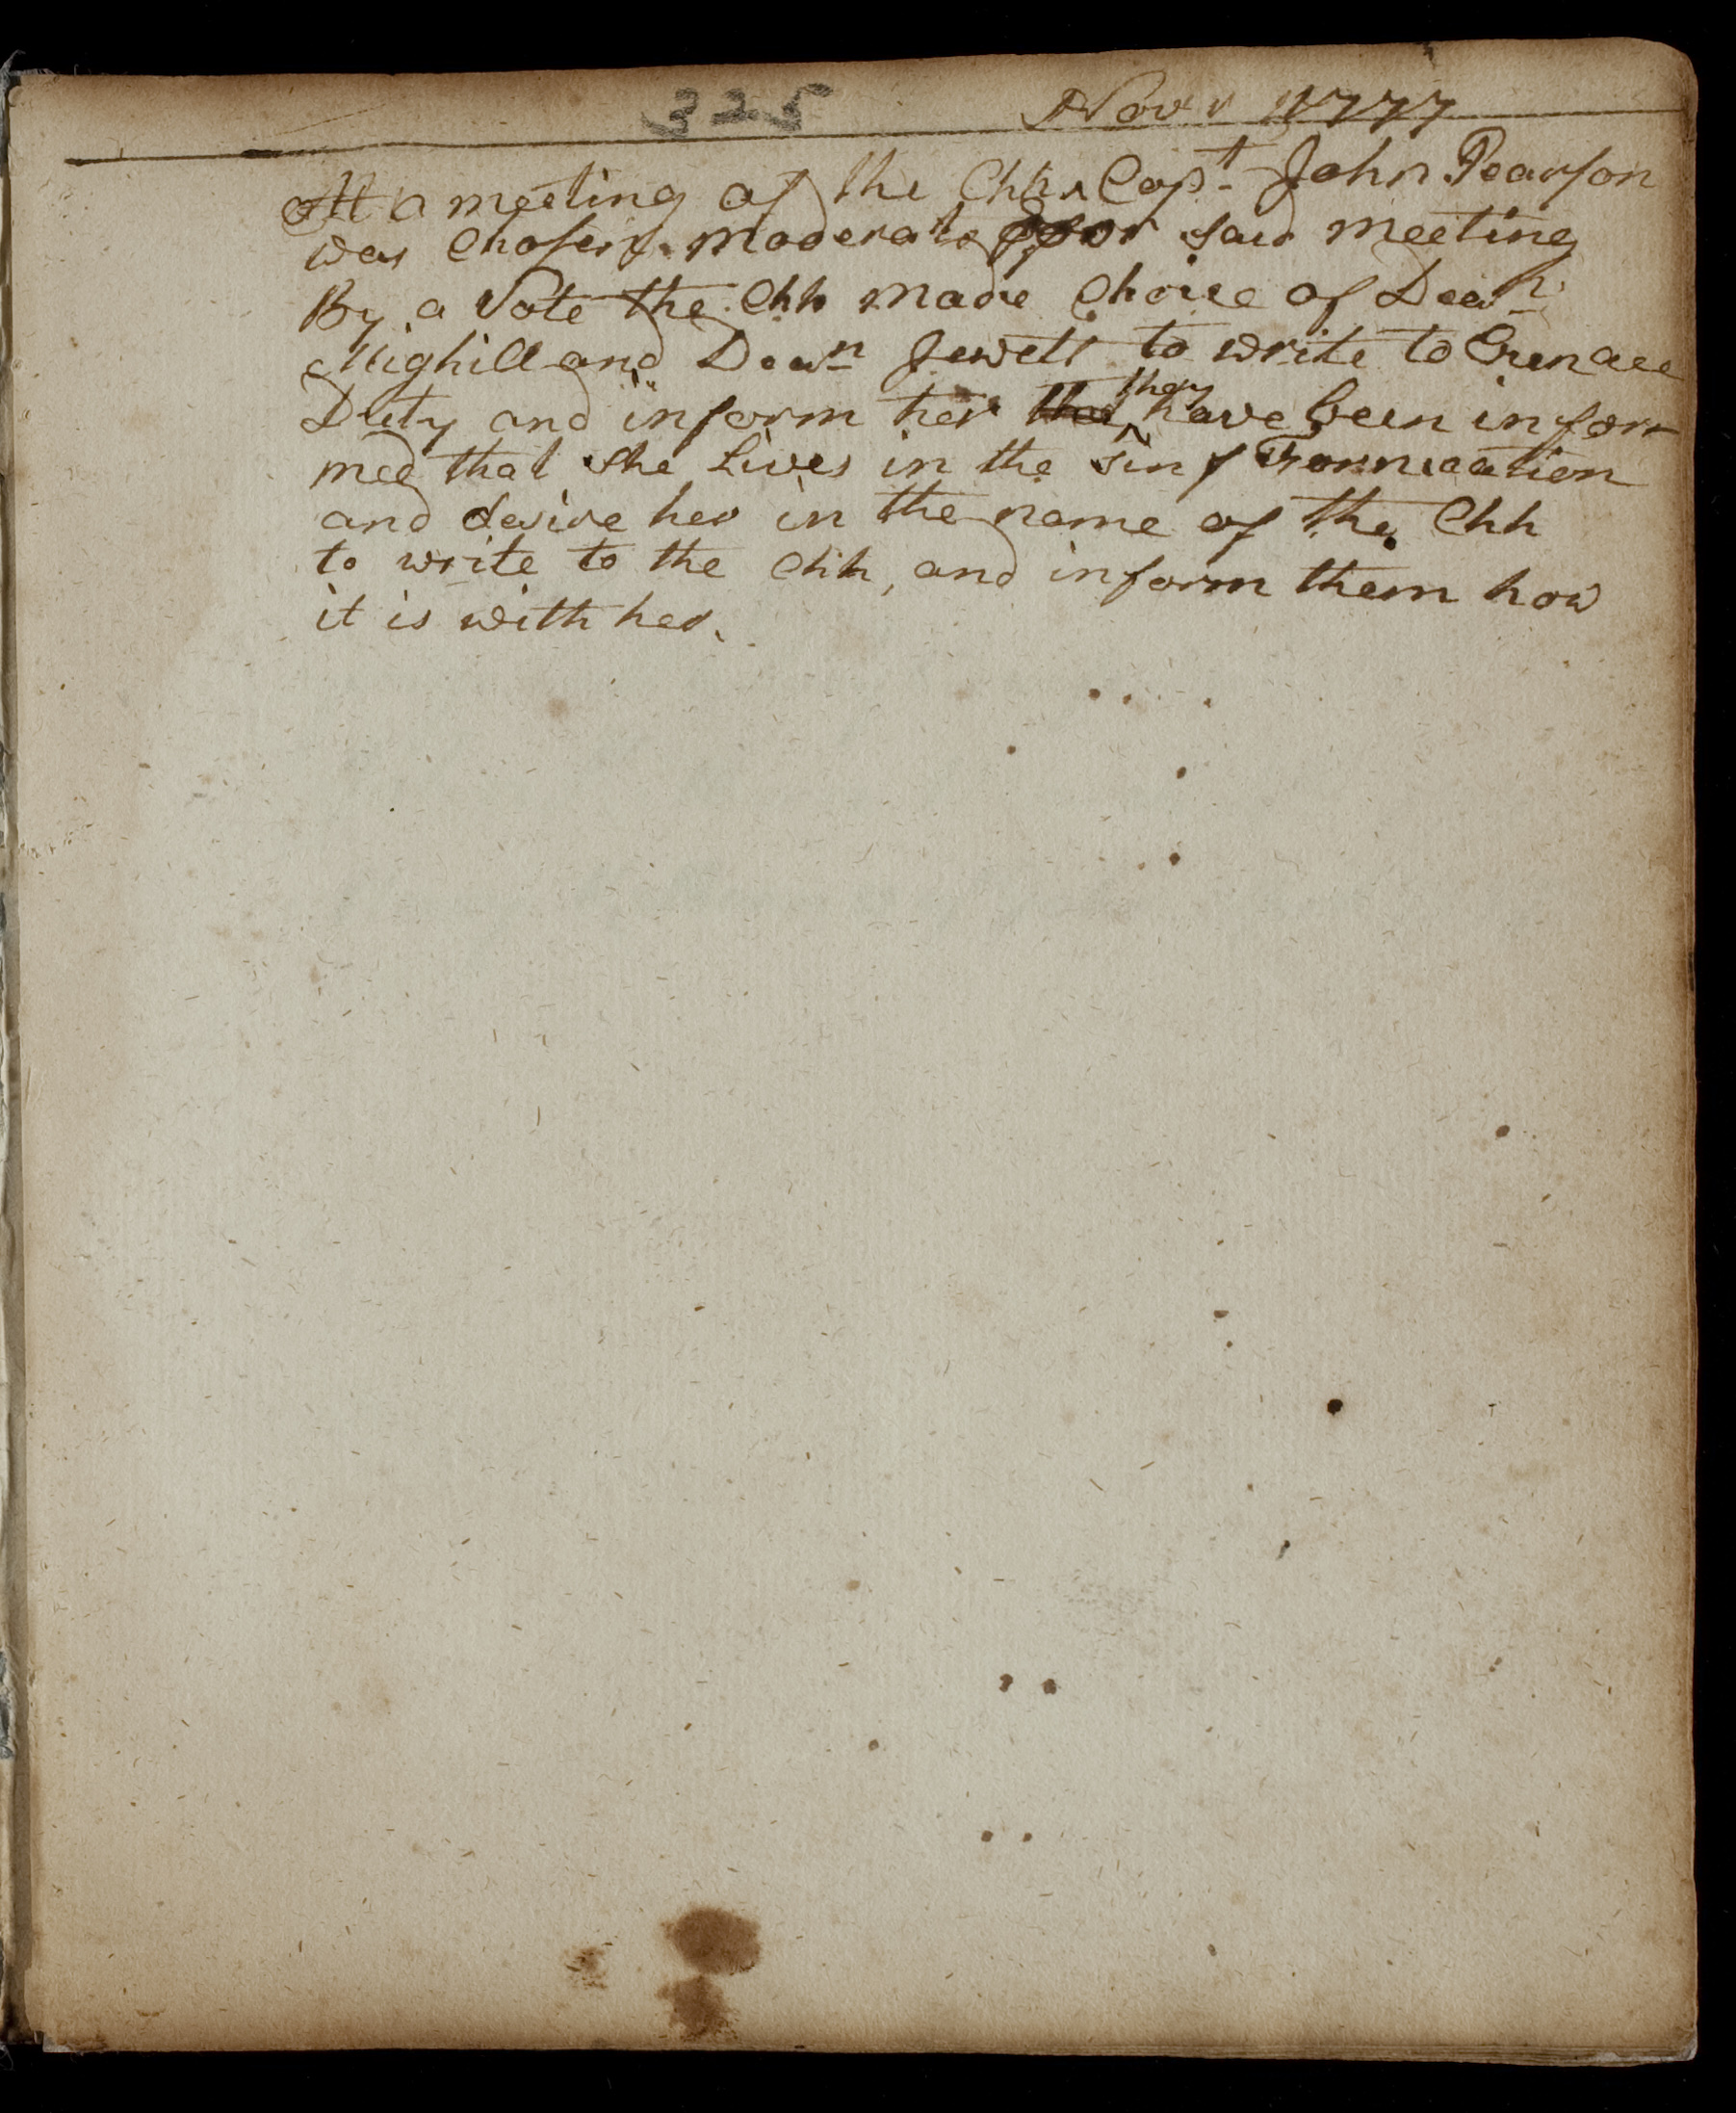 325 Novr 1777
At a meeting of the Chh, Capt John Pearson
was Chosen moderate for said meeting
By a Vote the Chh made Choice of Dean
Mighill and Dean Jewett to write to
Duty and inform her they have been infor
med that she Lives in the sin of Fornication
and desire her in the name of the Chh
to write to the Chh, and inform them how
it is with her.